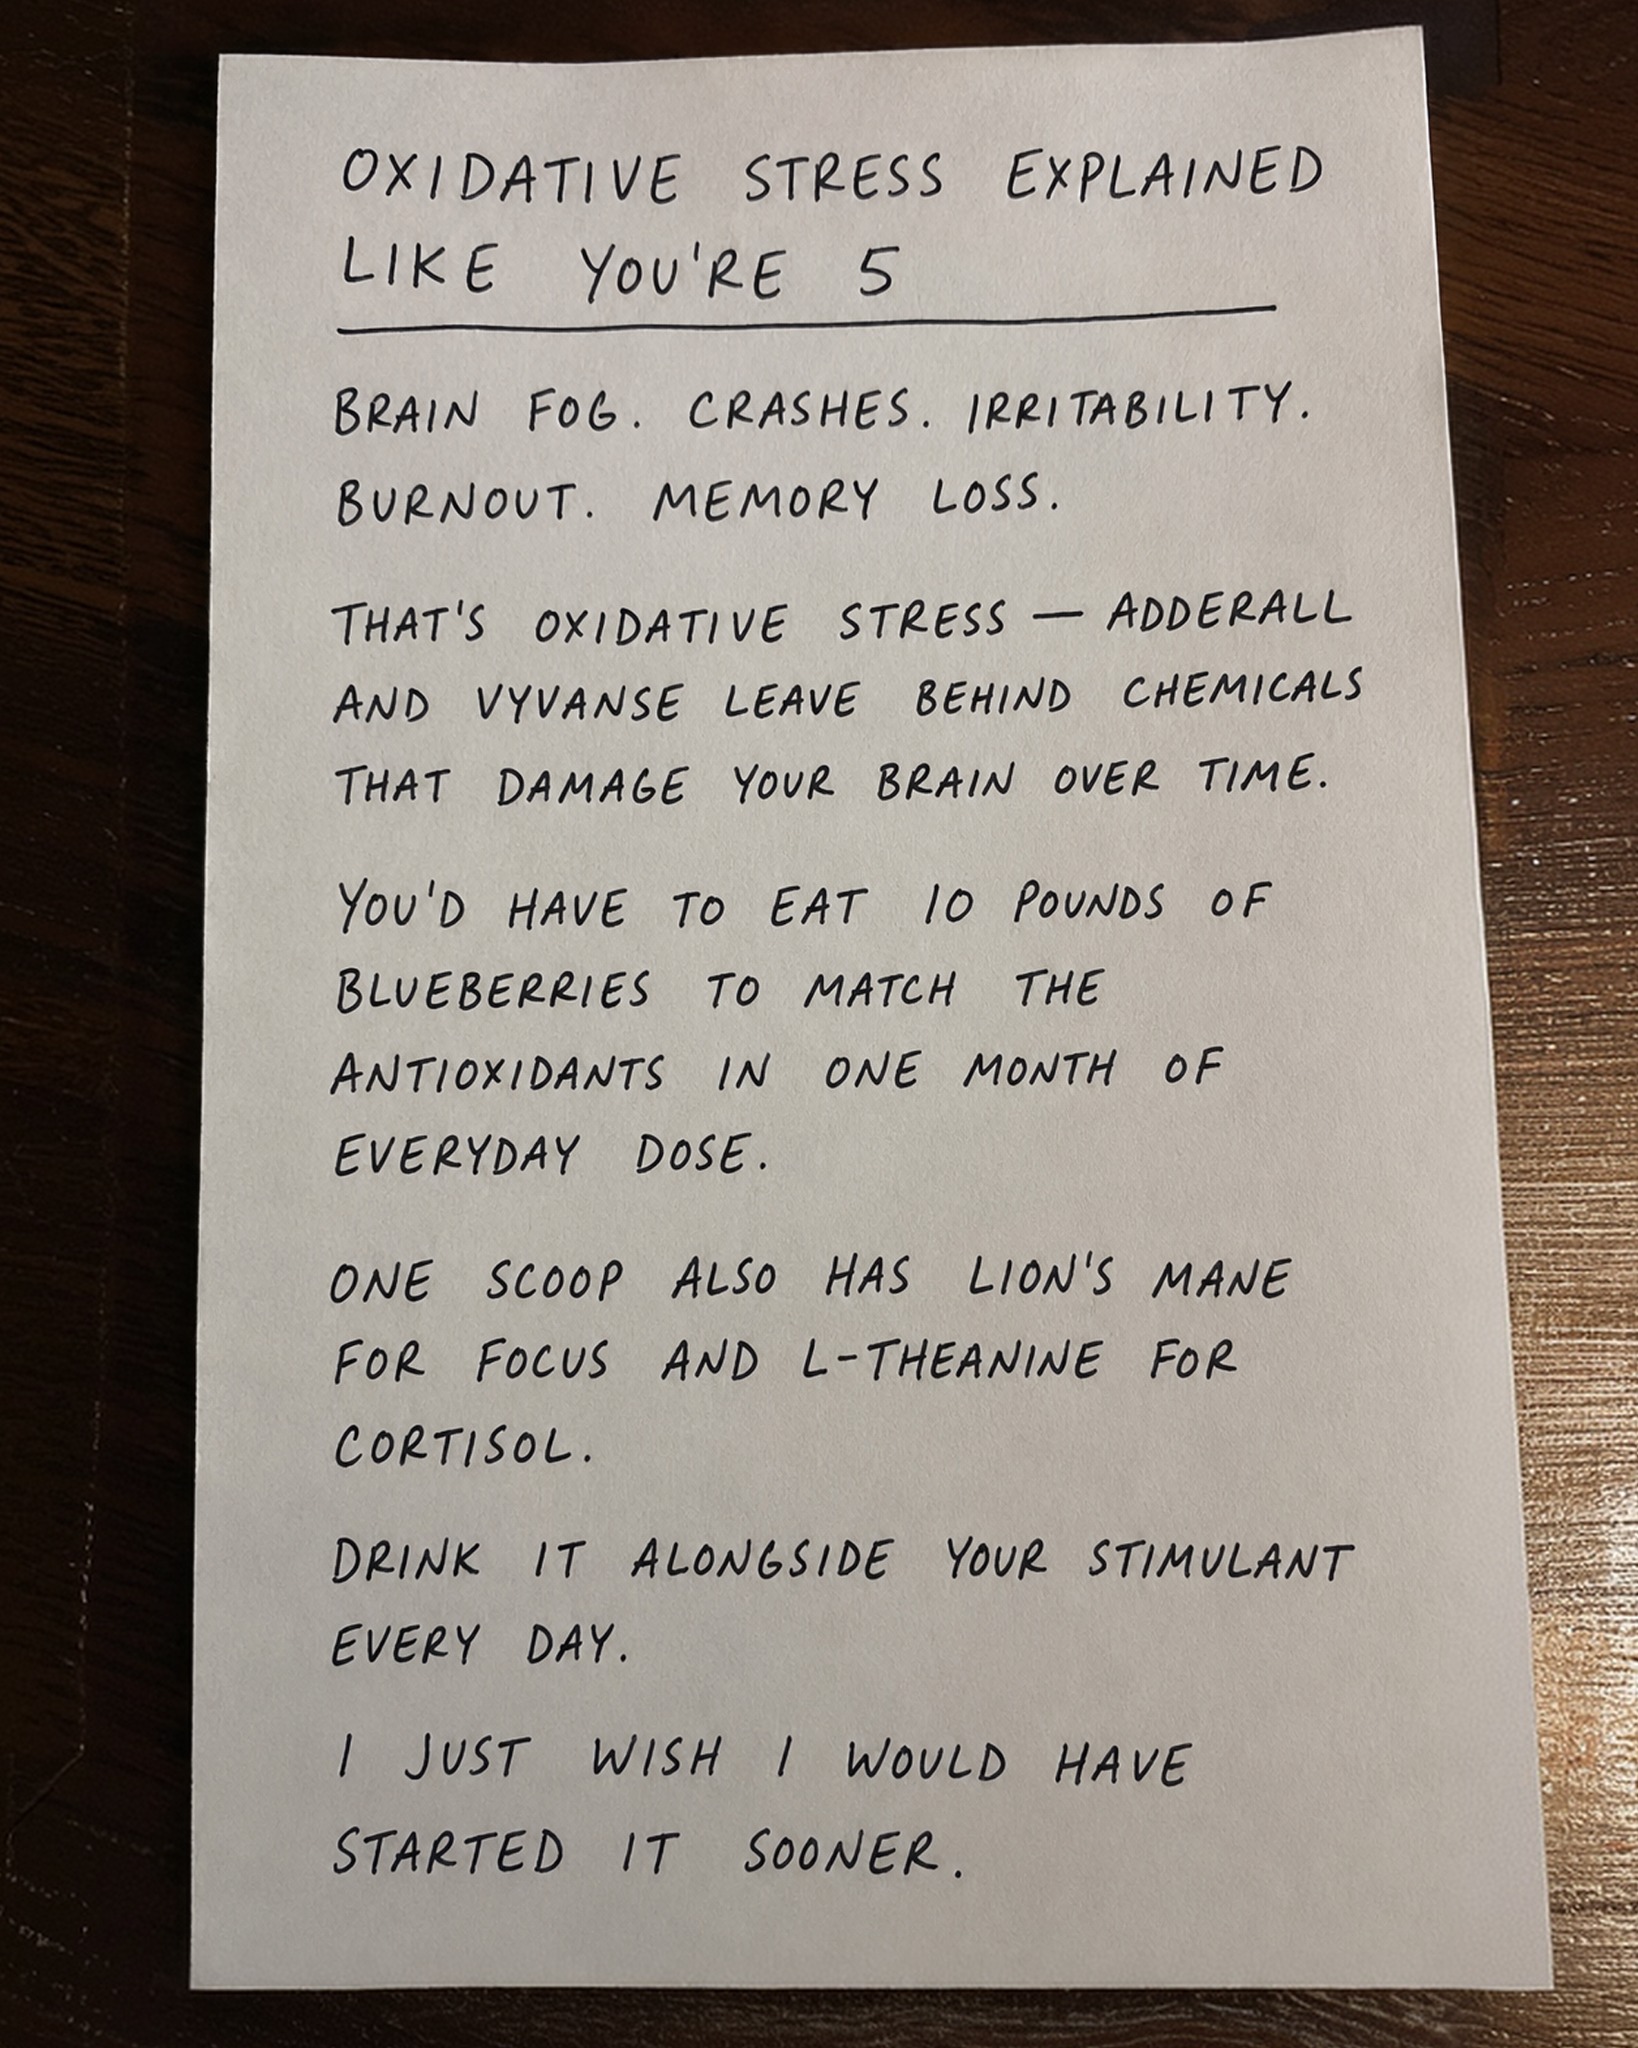 OXIDATIVE STRESS EXPLAINED
LIKE YOU'RE 5
BRAIN FOG. CRASHES. IRRITABILITY.
BURNOUT. MEMORY LOSS.
THAT'S OXIDATIVE STRESS — ADDERALL
AND VYVANSE LEAVE BEHIND CHEMICALS
THAT DAMAGE YOUR BRAIN OVER TIME.
YOU'D HAVE TO EAT 10 POUNDS OF
BLUEBERRIES TO MATCH THE
ANTIOXIDANTS IN ONE MONTH OF
EVERYDAY DOSE.
ONE SCOOP ALSO HAS LION'S MANE
FOR FOCUS AND L-THEANINE FOR
CORTISOL.
DRINK IT ALONGSIDE YOUR STIMULANT
EVERY DAY.
I JUST WISH I WOULD HAVE
STARTED IT SOONER.